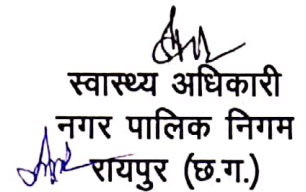 स्वास्थ्य अधिकारी
नगर पालिक निगम
रायपुर (छ.ग.)